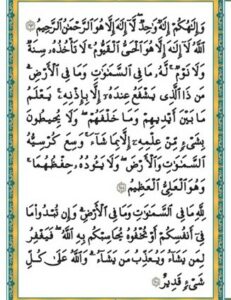 وَإِلَٰهُكُمْ إِلَٰهٌ وَٰحِدٌ لَّا إِلَٰهَ إِلَّا هُوَ الرَّحْمَٰنُ الرَّحِيمُ
اللَّهُ لَا إِلَٰهَ إِلَّا هُوَ الْحَيُّ الْقَيُّومُ لَا تَأْخُذُهُ سِنَةٌ
وَلَا نَوْمٌ لَّهُ مَا فِي السَّمَٰوَٰتِ وَمَا فِي الْأَرْضِ
مَن ذَا الَّذِي يَشْفَعُ عِندَهُ إِلَّا بِإِذْنِهِ يَعْلَمُ مَا
بَيْنَ أَيْدِيهِمْ وَمَا خَلْفَهُمْ وَلَا يُحِيطُونَ
بِشَيْءٍ مِّنْ عِلْمِهِ إِلَّا بِمَا شَاءَ وَسِعَ كُرْسِيُّهُ
السَّمَٰوَٰتِ وَالْأَرْضَ وَلَا يَئُودُهُ حِفْظُهُمَا
وَهُوَ الْعَلِيُّ الْعَظِيمُ
لِّلَّهِ مَا فِي السَّمَٰوَٰتِ وَمَا فِي الْأَرْضِ وَإِن تُبْدُوا مَا
فِي أَنفُسِكُمْ أَوْ تُخْفُوهُ يُحَاسِبْكُم بِهِ اللَّهُ فَيَغْفِرُ
لِمَن يَشَاءُ وَيُعَذِّبُ مَن يَشَاءُ وَاللَّهُ عَلَىٰ كُلِّ
شَيْءٍ قَدِيرٌ